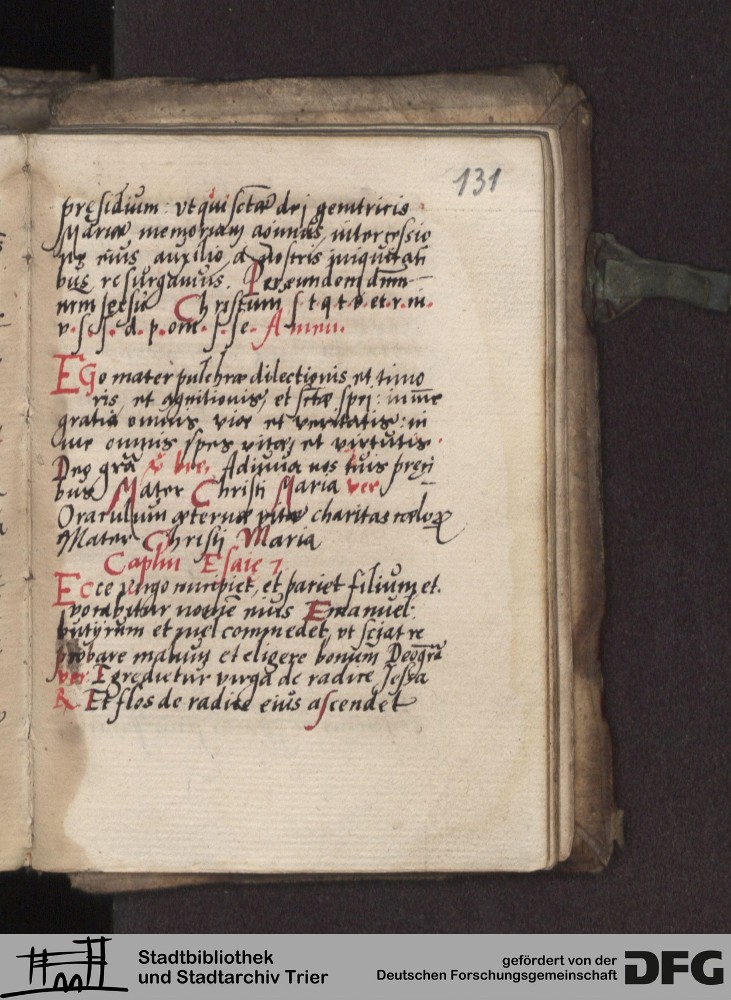 131
pręsidium: vt qui sctæ dei genitricis
Mariæ memoriam agimus, intercessio
nis eius auxilio, a nostris iniquitati
bus resurgamus. Per eundem dnm
nrm Jesū Christum s. t. q. t. v. et. r. in.
v. s. s. d. p. om. s. se. Amen.
EGo mater pulchræ dilectionis et timo
ris, et agnitionis, et sctæ spei: in me
gratia omnis viæ et veritatis: in
me omnis spes vitæ, et virtutis.
Deo gra Adiuua nos tuis preci
bus Mater Christi Maria ver
Oraculum æternæ vitæ charitas cœlo
Mater Christi Maria
Caplm Esaie 7.
Ecce virgo concipiet, et pariet filium et.
vocabitur nomē eius Emanuel:
butyrum et mel commedet, vt sciat re
probare malum et eligere bonum Deo gra
ver Egredietur virga de radice Jessa
R Et flos de radice eius ascendet
Stadtbibliothek
und Stadtarchiv Trier
gefördert von der
Deutschen Forschungsgemeinschaft
DFG